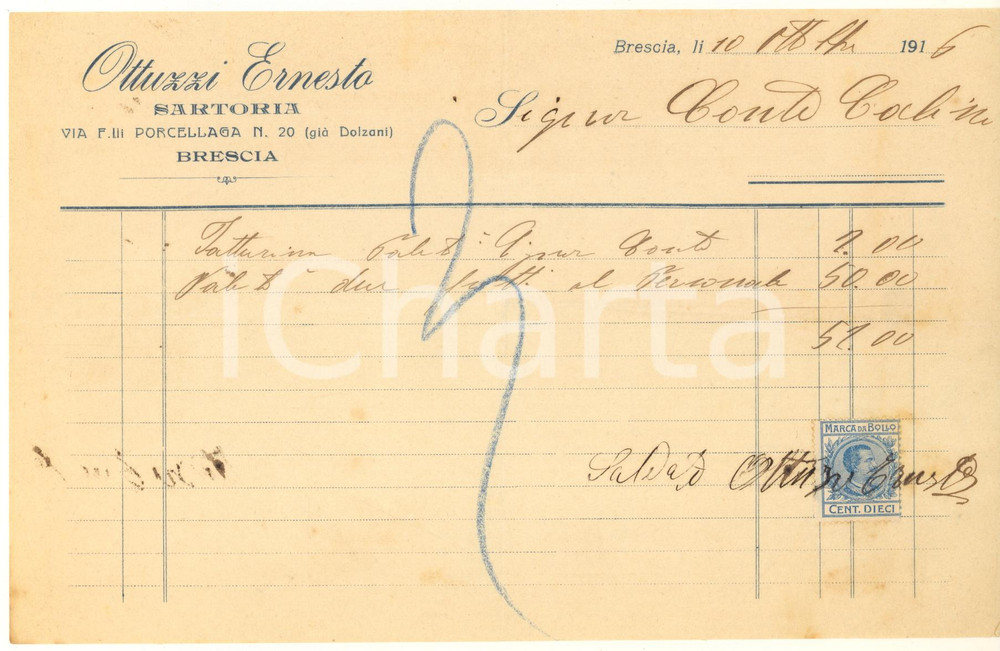 Ottuzzi Ernesto
SARTORIA
VIA F.lli PORCELLAGA N. 20 (già Dolzani)
BRESCIA
Brescia, li 10 Ottobre 1916
Signor Conte Calini
Fatturina Paletò Signor Conte
Paletò due fatti al Personale 50.00
iCharta
MARCA DA BOLLO
Saldato Ottuzzi Ernesto
CENT. DIECI